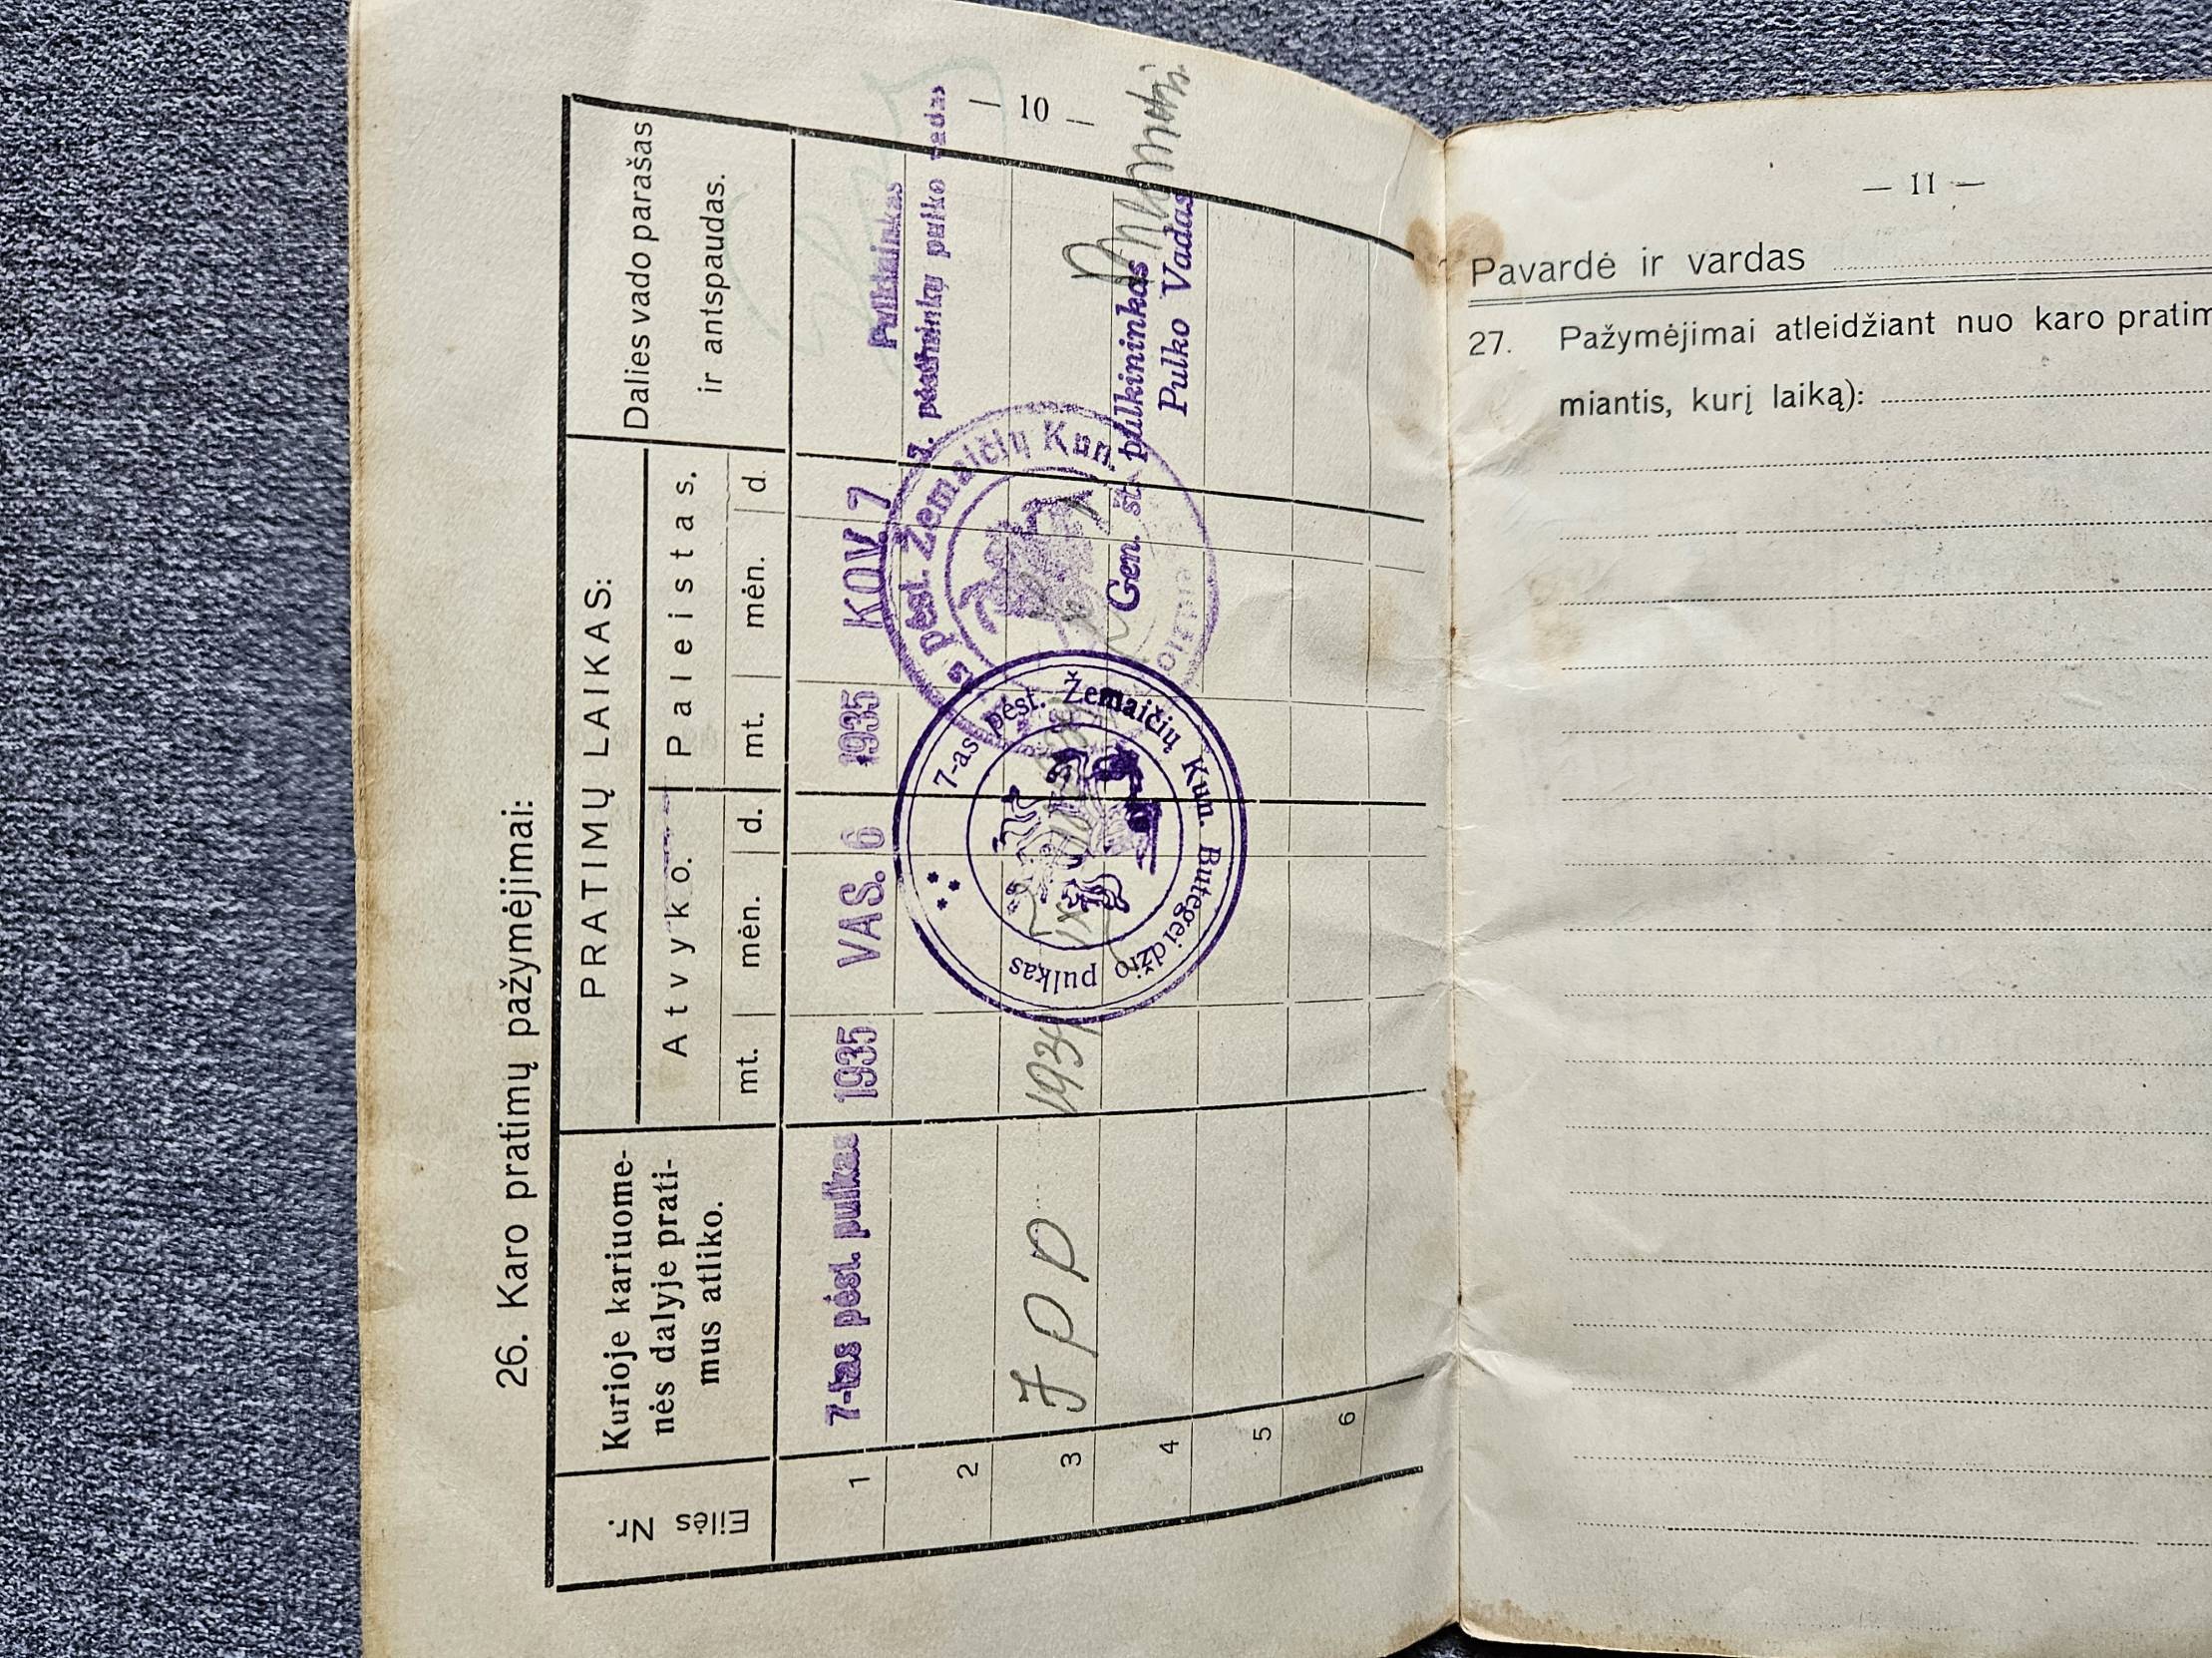 — 10 —
26. Karo pratimų pažymėjimai:
Eilės
Nr.
Kurioje kariuome-
nės dalyje prati-
mus atliko.
PRATIMŲ LAIKAS:
Atvyko.
Paleistas.
mt.
mėn.
d.
mt.
mėn.
d.
Dalies vado parašas
ir antspaudas.
1
7-tas pėst. pulkas
1935
VAS. 6
1935
KOV. 7
Pulkininkas
pėstininkų pulko vadas
2
3
7 P P
193
4
5
6
pėst. Žemaičių Kun.
7-as pėst. Žemaičių Kun. Butegeidžio pulkas
Gen. št. pulkininkas
Pulko Vadas
— 11 —
Pavardė ir vardas
27. Pažymėjimai atleidžiant nuo karo pratim
miantis, kurį laiką):